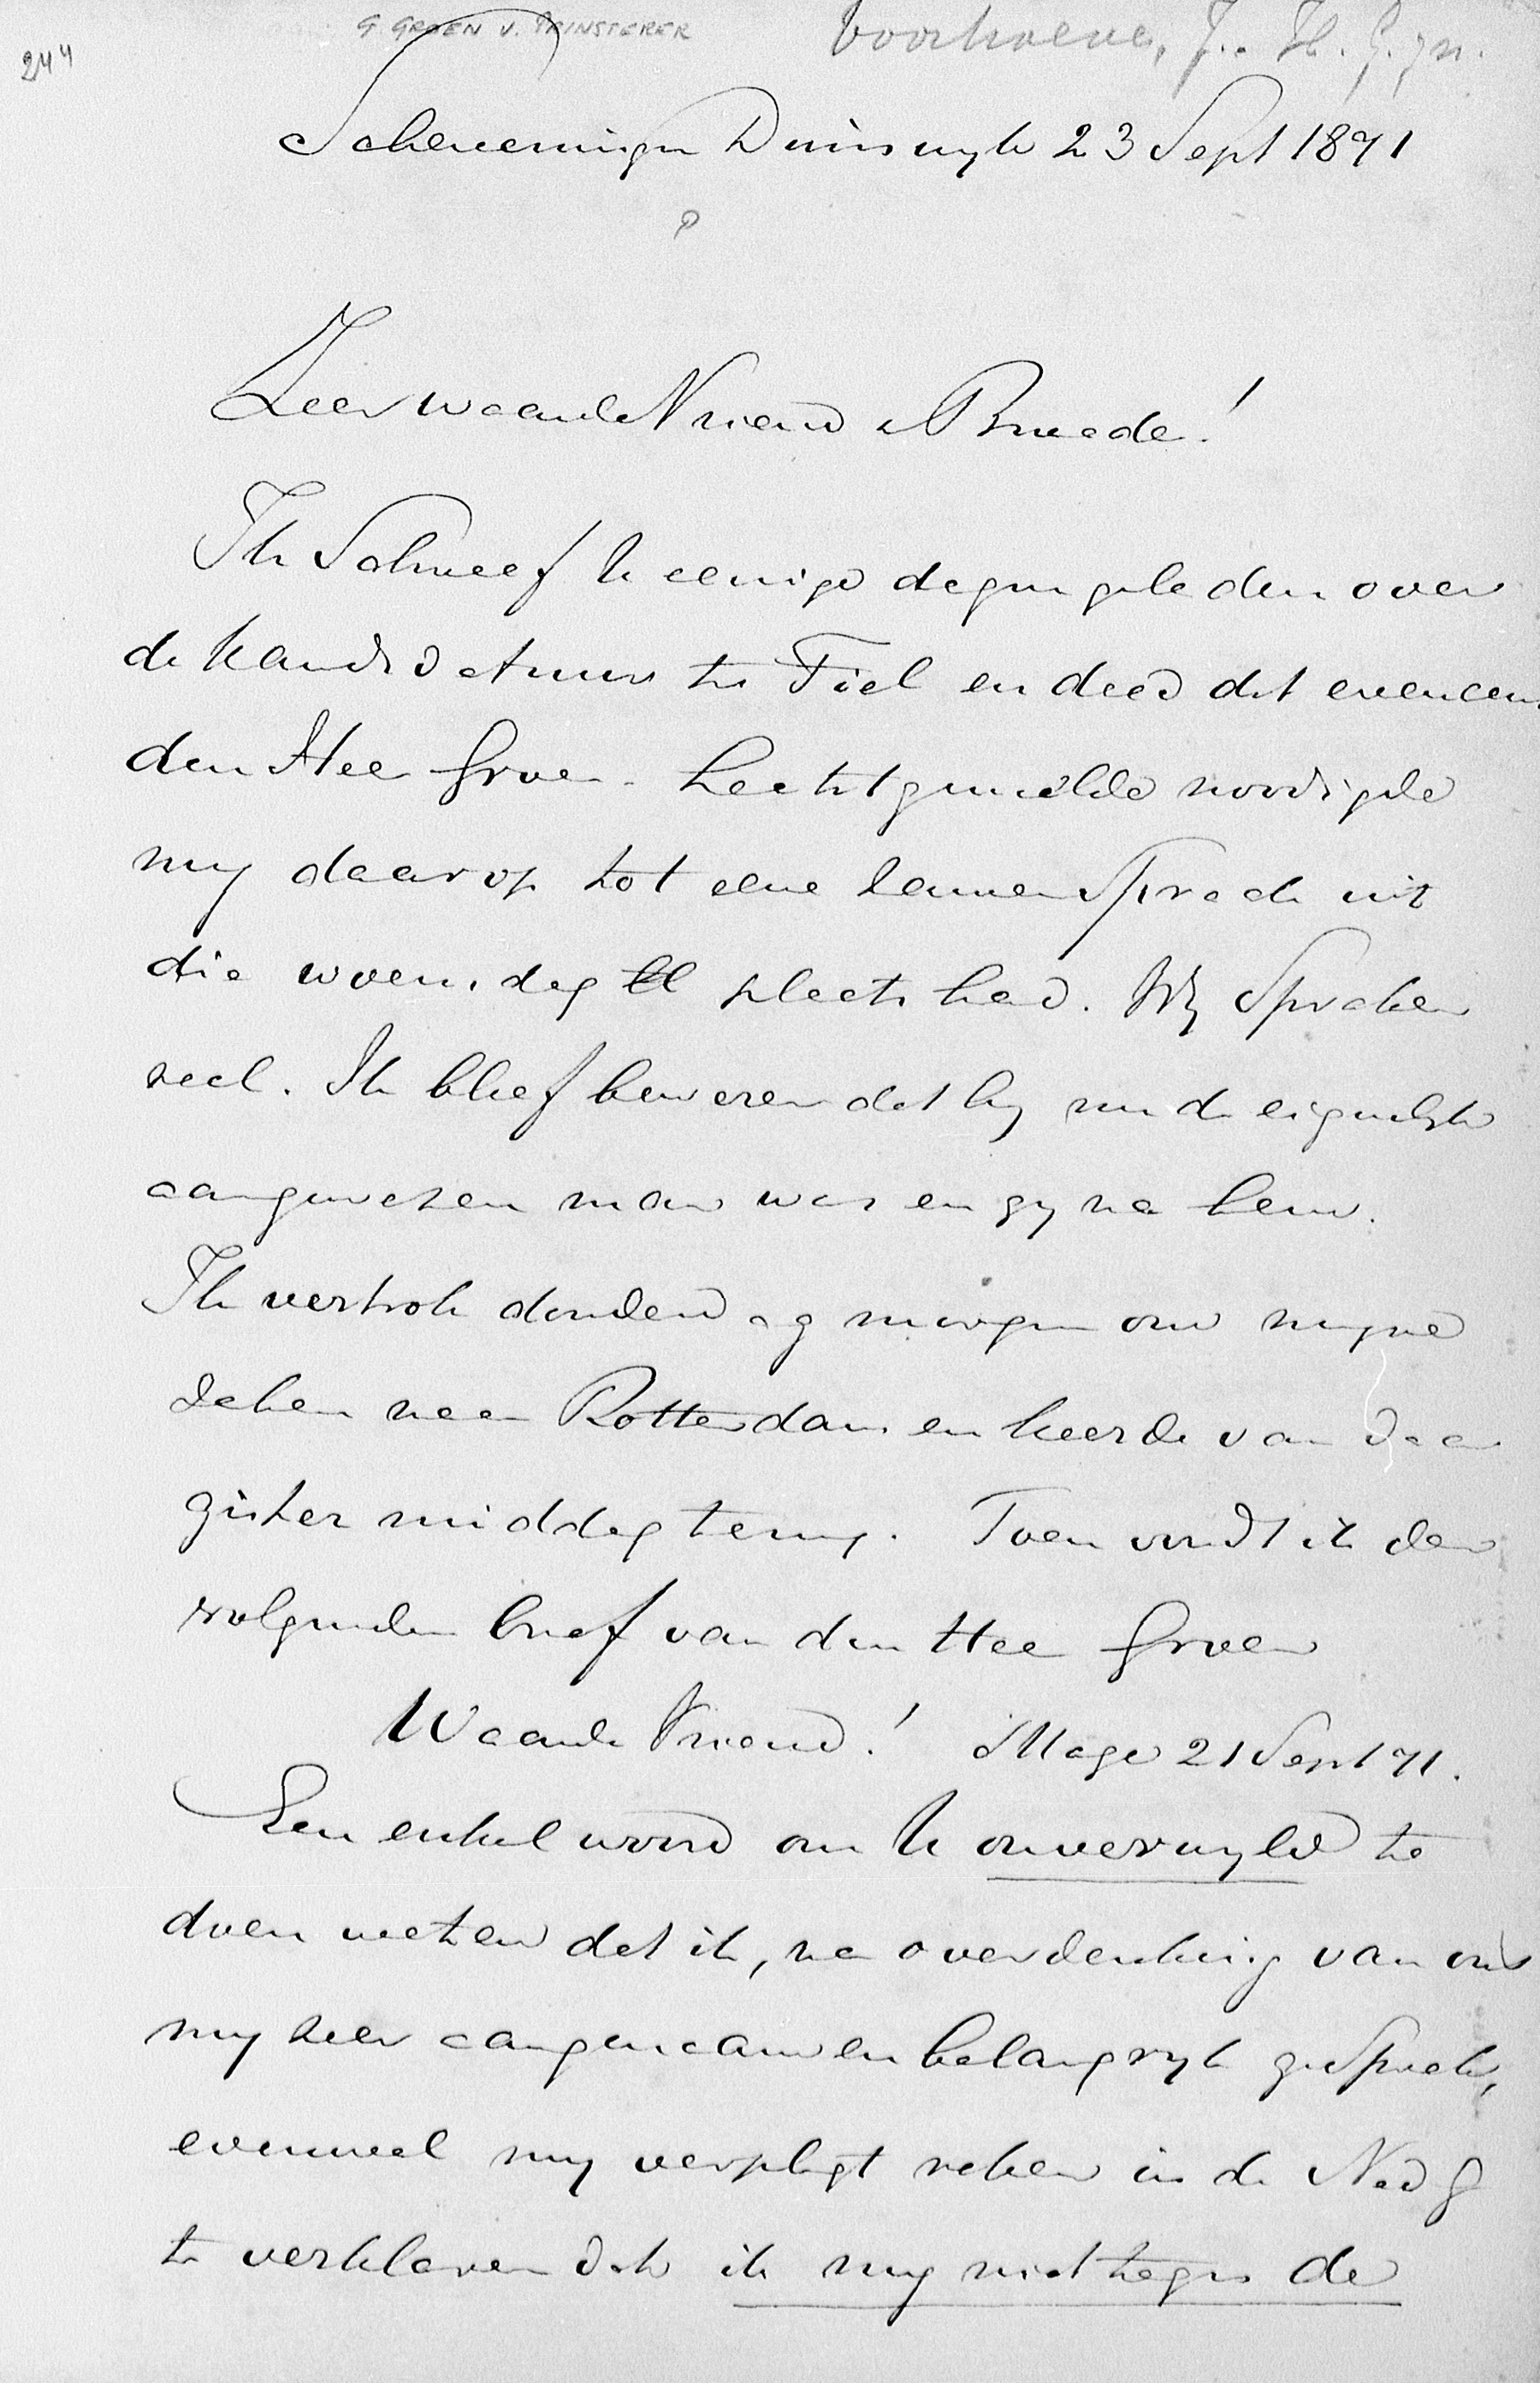 G. GROEN V. PRINSTERER
Voorhoeve, J. H. G. zn.
244
Scheveningen Duinwyk 23 Sept 1871
Zeer waarde Vriend & Broeder!
Ik Schreef U eenige dagen geleden over
de kandidatuur te Tiel en deed dit eveneens
den Heer Groen. Laatstgemelde noodigde
my daarop tot eene samenspraak uit
die woensdag ll plaats had. Wy Spraken
veel. Ik bleef beweren dat hy nu de eigenlyke
aangewezen man was en gy na hem.
Ik vertrok donderdag morgen om myne
zaken naar Rotterdam en keerde van daar
gister middag terug. Toen vondt ik den
volgenden brief van den Heer Groen
Waarde Vriend! 'sHage 21 Sept 71.
Een enkel woord om U onverwyld te
doen weten dat ik, na overdenking van ons
my zeer aangenaam en belangryk gesprek,
evenwel my verpligt reken in de Ned G
te verklaren dat ik my niet tegen de